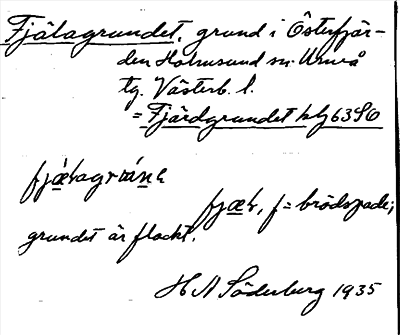 Fjälagrundet, grund i Österfjär-
den Holmsund sn. Umeå
tg. Västerb. l.
= Fjärdgrundet
fjæ, f = brödspade;
grundet är flackt.
H A Söderburg 1935